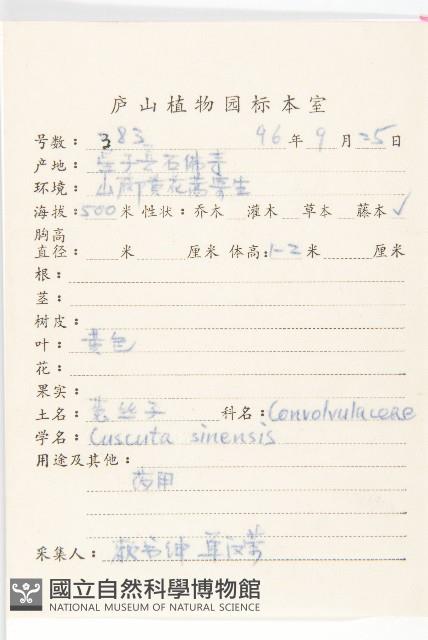 庐山植物园标本室
号数：383 96年9月25日
产地：星子县石佛寺
环境：山间黄花蒿寄生
海拔：500米 性状：乔木 灌木 草本 藤本✓
胸高
直径： 米 厘米 体高：1-2米 厘米
根：
茎：
树皮：
叶：黄色
花：
果实：
土名：菟丝子 科名：Convolvulaceae
学名：Cuscuta sinensis
用途及其他：
药用
采集人：
國立自然科學博物館
NATIONAL MUSEUM OF NATURAL SCIENCE